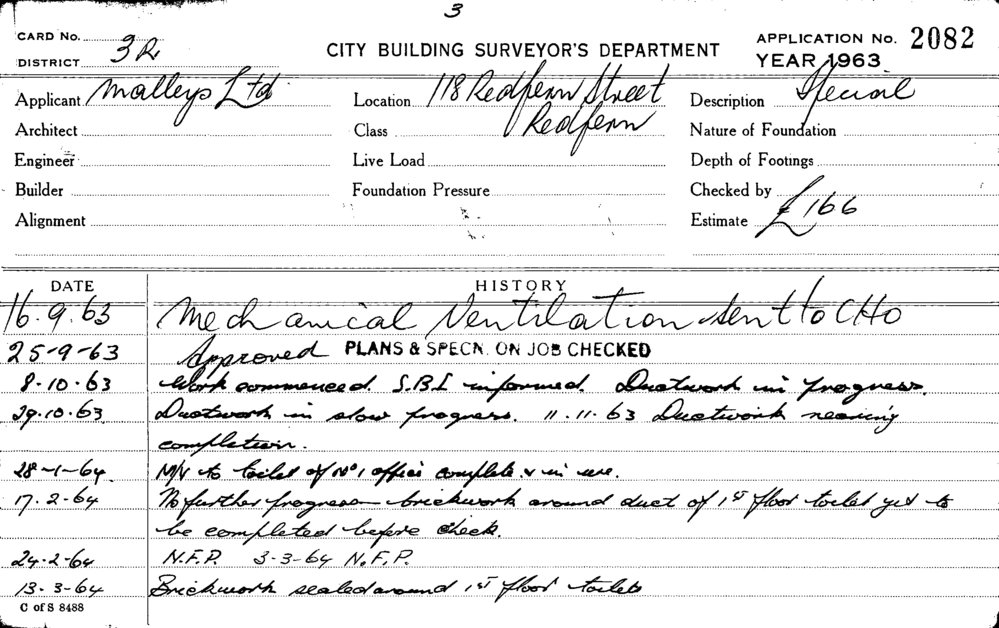 3
CARD No.
DISTRICT 3R
CITY BUILDING SURVEYOR'S DEPARTMENT
APPLICATION No. 2082
YEAR 1963
Applicant Malleys Ltd
Location 118 Redfern Street
Redfern
Description Special
Architect
Class
Nature of Foundation
Engineer
Live Load
Depth of Footings
Builder
Foundation Pressure
Checked by
Alignment
Estimate £166
DATE HISTORY
16.9.63 Mechanical Ventilation sent to CHO
25-9-63 Approved PLANS & SPECN. ON JOB CHECKED
8.10.63 Work commenced. S.B.I informed. Ductwork in progress.
29.10.63 Ductwork in slow progress. 11.11.63 Ductwork nearing
completion.
28-1-64 M/V to toilet of No 1 office complete & in use.
17.2-64 No further progress - brickwork around duct of 1st floor toilet yet to
be completed before check.
24-2-64 N.F.P. 3-3-64 N.F.P.
13.3-64 Brickwork sealed around 1st floor toilets
C of S 8488